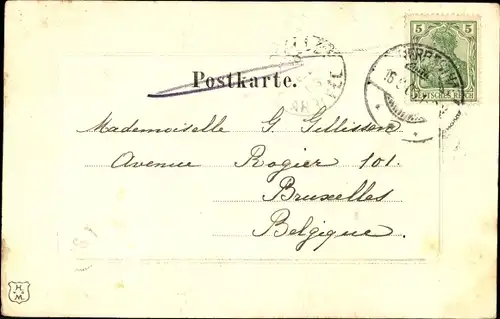 5 5
DEUTSCHES REICH
Postkarte.
Mademoiselle G. Gillissen
Avenue Rogier 101.
Bruxelles
Belgique.
H M